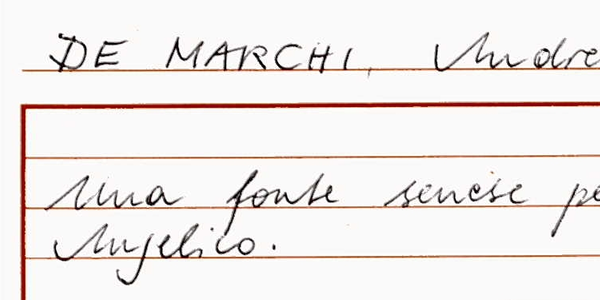 DE MARCHI, Andre
Una fonte senese pe
Angelico.